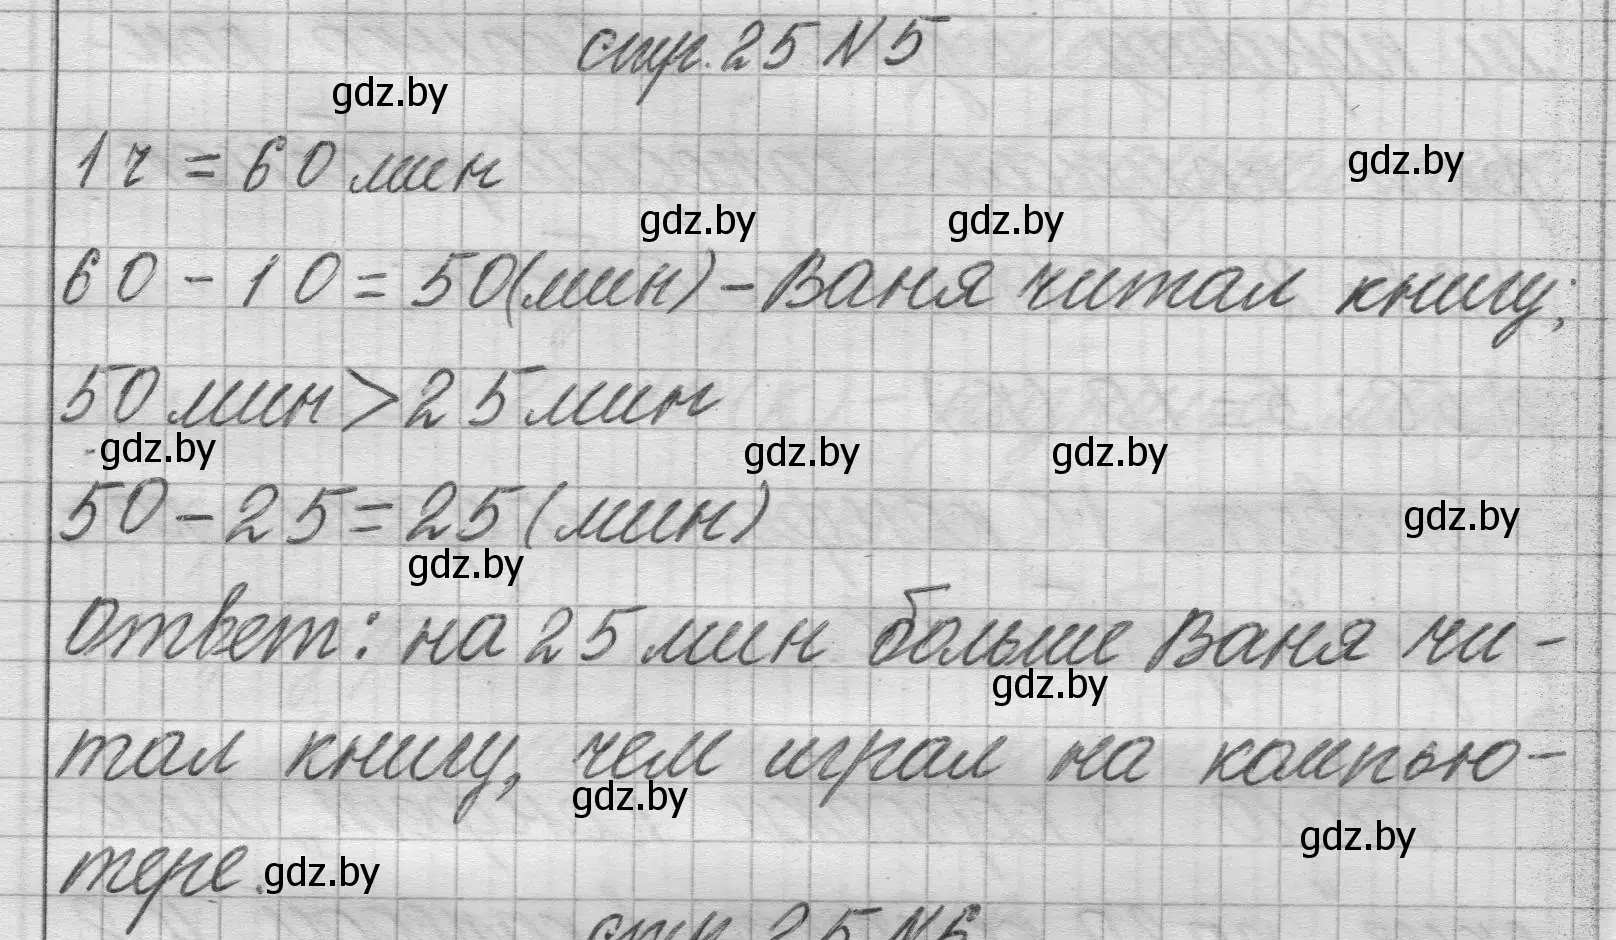 стр. 25 N 5
gdz.by
1 ч = 60 мин
gdz.by
gdz.by gdz.by
60 - 10 = 50 (мин) - Ваня читал книгу;
50 мин > 25 мин
gdz.by gdz.by gdz.by
50 - 25 = 25 (мин)
gdz.by
gdz.by
Ответ: на 25 мин больше Ваня чи-
gdz.by
тал книгу, чем играл на компью-
gdz.by
gdz.by
тере. gdz.by
стр. 25 N 6